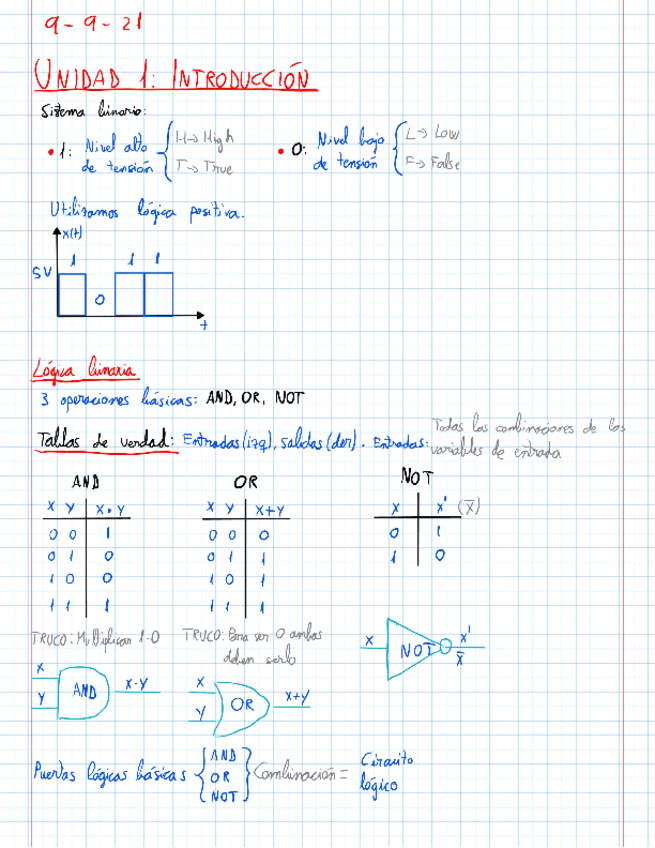 9-9-21
UNIDAD 1: INTRODUCCIÓN
Sistema binario:
• 1: Nivel alto de tensión { H → High T → True
• 0: Nivel bajo de tensión { L → Low F → False
Utilizamos lógica positiva.
x(t)
5V 1 0 1 1
t
Lógica binaria
3 operaciones básicas: AND, OR, NOT
Tablas de verdad: Entradas (izq), salidas (der). Entradas: Todas las combinaciones de las variables de entrada
AND
x y x·y
0 0 1
0 1 0
1 0 0
1 1 1
TRUCO: Multiplican 1-0
OR
x y x+y
0 0 0
0 1 1
1 0 1
1 1 1
TRUCO: Para ser 0 ambas deben serlo
NOT
x x' (x̅)
0 1
1 0
x y AND x·y
x y OR x+y
x NOT x' x̅
Puertas lógicas básicas { AND OR NOT } Combinación = Circuito lógico